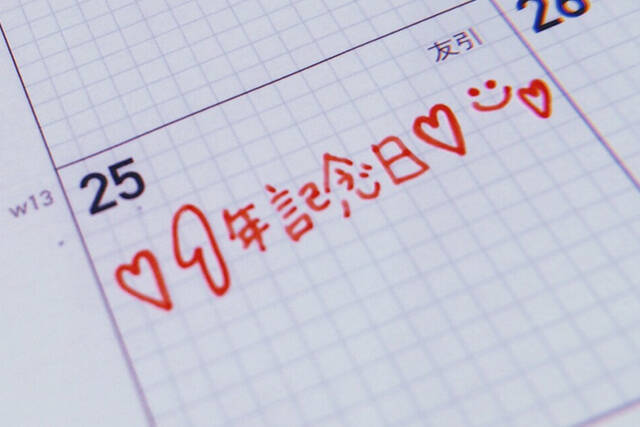 友引 26
25
w13
♡1年記念日♡☺♡